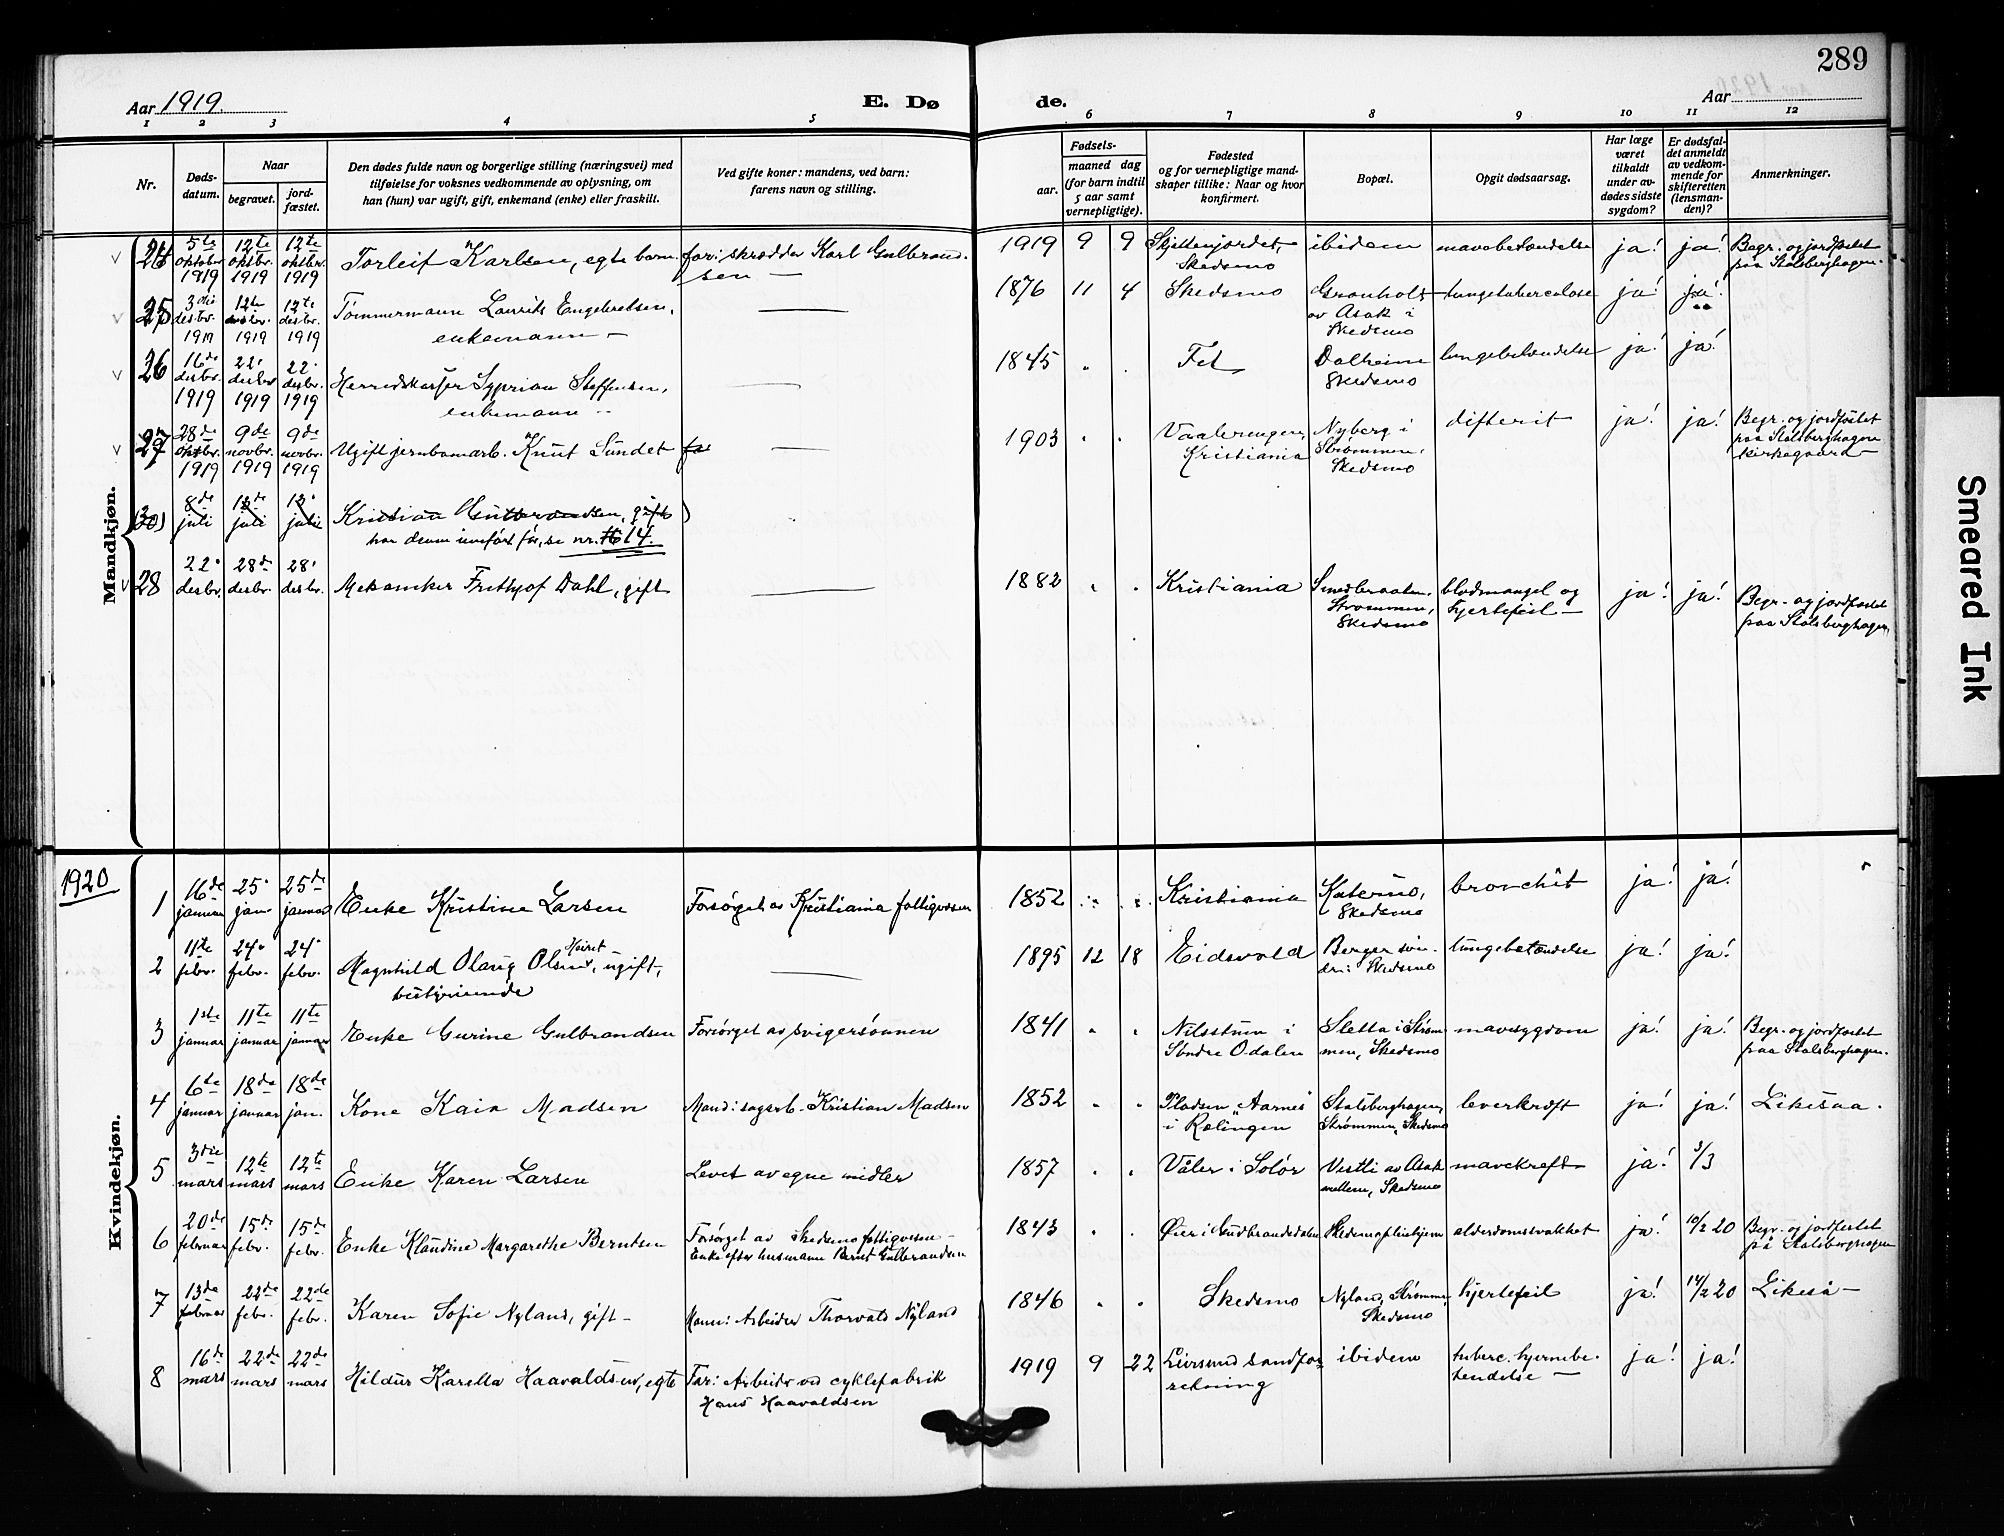 289
Aar 1919.
E. Dø
de.
Aar
1 2 3 4 5
6 7 8 9 10 11 12
Nr.
Døds-
datum.
Naar
begravet.
jord-
fæstet.
Den dødes fulde navn og borgerlige stilling (næringsvei) med
tilføielse for voksnes vedkommende av oplysning, om
han (hun) var ugift, gift, enkemand (enke) eller fraskilt.
Ved gifte koner: mandens, ved barn:
farens navn og stilling.
Fødsels-
aar.
maaned dag
(for barn indtil
5 aar samt
vernepligtige).
Fødested
og for vernepligtige mand-
skaper tillike: Naar og hvor
konfirmert.
Bopæl.
Opgit dødsaarsag.
Har læge
været
tilkaldt
under av-
dødes sidste
sygdom?
Er dødsfal-
det anmeldt
av vedkom-
mende for
skifteretten
(lensman-
den)?
Anmerkninger.
Mandkjøn.
24 5te oktober 1919 12te oktbr. 1919 12te oktbr. 1919 Torleif Karlsen, egte barn far: skrædder Karl Gulbrand-
sen — 1919 9 9 Skjettenjordet, Skedsmo ibidem mavebetændelse ja! ja! Begr. og jordfæstet
paa Stalsberghagen.
25 3die desbr. 1919 12te desbr. 1919 12te desbr. 1919 Tømmermann Laurits Engebretsen,
enkemann — 1876 11 4 Skedsmo Grønholt
av Asak i
Skedsmo lungetuberculose ja! ja!
26 16de desbr. 1919 22. desbr 1919 22. desbr. 1919 Herredskasser Syprian Steffensen,
enkemann 1845 Fet Dalheim
Skedsmo lungebetændelse ja! ja!
27 28de oktbr. 1919 9de novbr. 1919 9de novbr. 1919 Ugift jernbanearb. Knut Sundet 1903 Vaalerengen,
Kristiania Nyberg i
Strømmen,
Skedsmo difterit ja! ja! Begr. og jordfæstet
paa Stalsberghagen
kirkegaard —
(30) 8de juli 12de juli 12. juli Kristian Gulbrandsen, gift
se nr. 14.
28 22. desbr. 28de desbr. 28. desbr. Mekaniker Frithjof Dahl, gift 1882 Kristiania Smedbraaten,
Strømmen,
Skedsmo blodmangel og
hjertefeil — ja! ja! Begr. og jordfæstet
paa Stalsberghagen.
1920
Kvindekjøn.
1 16de januar 25. jan. 25de januar Enke Kristine Larsen Forsørget av Kristiania fattigvæsen 1852 Kristiania Skedsmo bronchit ja! ja!
2 11te febr. 24. febr. 24. febr. Magnhild Olaug Olsen, ugift,
bestyrerinde 1895 12 18 Eidsvold Berger søn-
dre: Skedsmo lungebetændelse ja! ja!
3 1ste januar 11te januar 11te januar Enke Gurine Gulbrandsen Forsørget av svigersønnen 1841 Nilsstuen i
Søndre Odalen Sletta i Strøm-
men, Skedsmo mavesygdom ja! ja! Begr. og jordfæstet
paa Stalsberghagen.
4 6te januar 18de januar 18de jan. Kone Kaia Madsen Mand: sagarb. Kristian Madsen 1852 Pladsen „Aarnes"
i Rælingen Stalsberghagen,
Strømmen, Skedsmo leverkræft ja! ja! Likesaa.
5 3die mars 12te mars 12te mars Enke Karen Larsen Levet av egne midler 1857 Våler i Solør Vestli av Asak
mellem, Skedsmo mavekreft ja! 3/3
6 20de februar 15de febr. 15de febr. Enke Klaudine Margarethe Berntsen Forsørget av Skedsmo fattigvesen —
Enke efter husmann Bernt Gulbrandsen 1843 Øier i Gudbrandsdalen Skedsmo pleiehjem alderdomssvakhet ja! 10/2 20 Begr. og jordfestet
på Stalsberghagen
7 13de februar 22de febr. 22de febr. Karen Sofie Nyland, gift — Mann: Arbeider Thorvald Nyland 1846 Skedsmo Nyland, Strømmen,
Skedsmo hjertefeil ja! 14/2 20 Likeså —
8 16de mars 22de mars 22de mars Hildur Karella Haavaldsen, egte Far: Arbeider ved cyklefabrik
Hans Haavaldsen 1919 9 22 Leirsund sandfor-
retning ibidem tuberc. hjernebe-
tendelse — ja! ja!
Smeared Ink